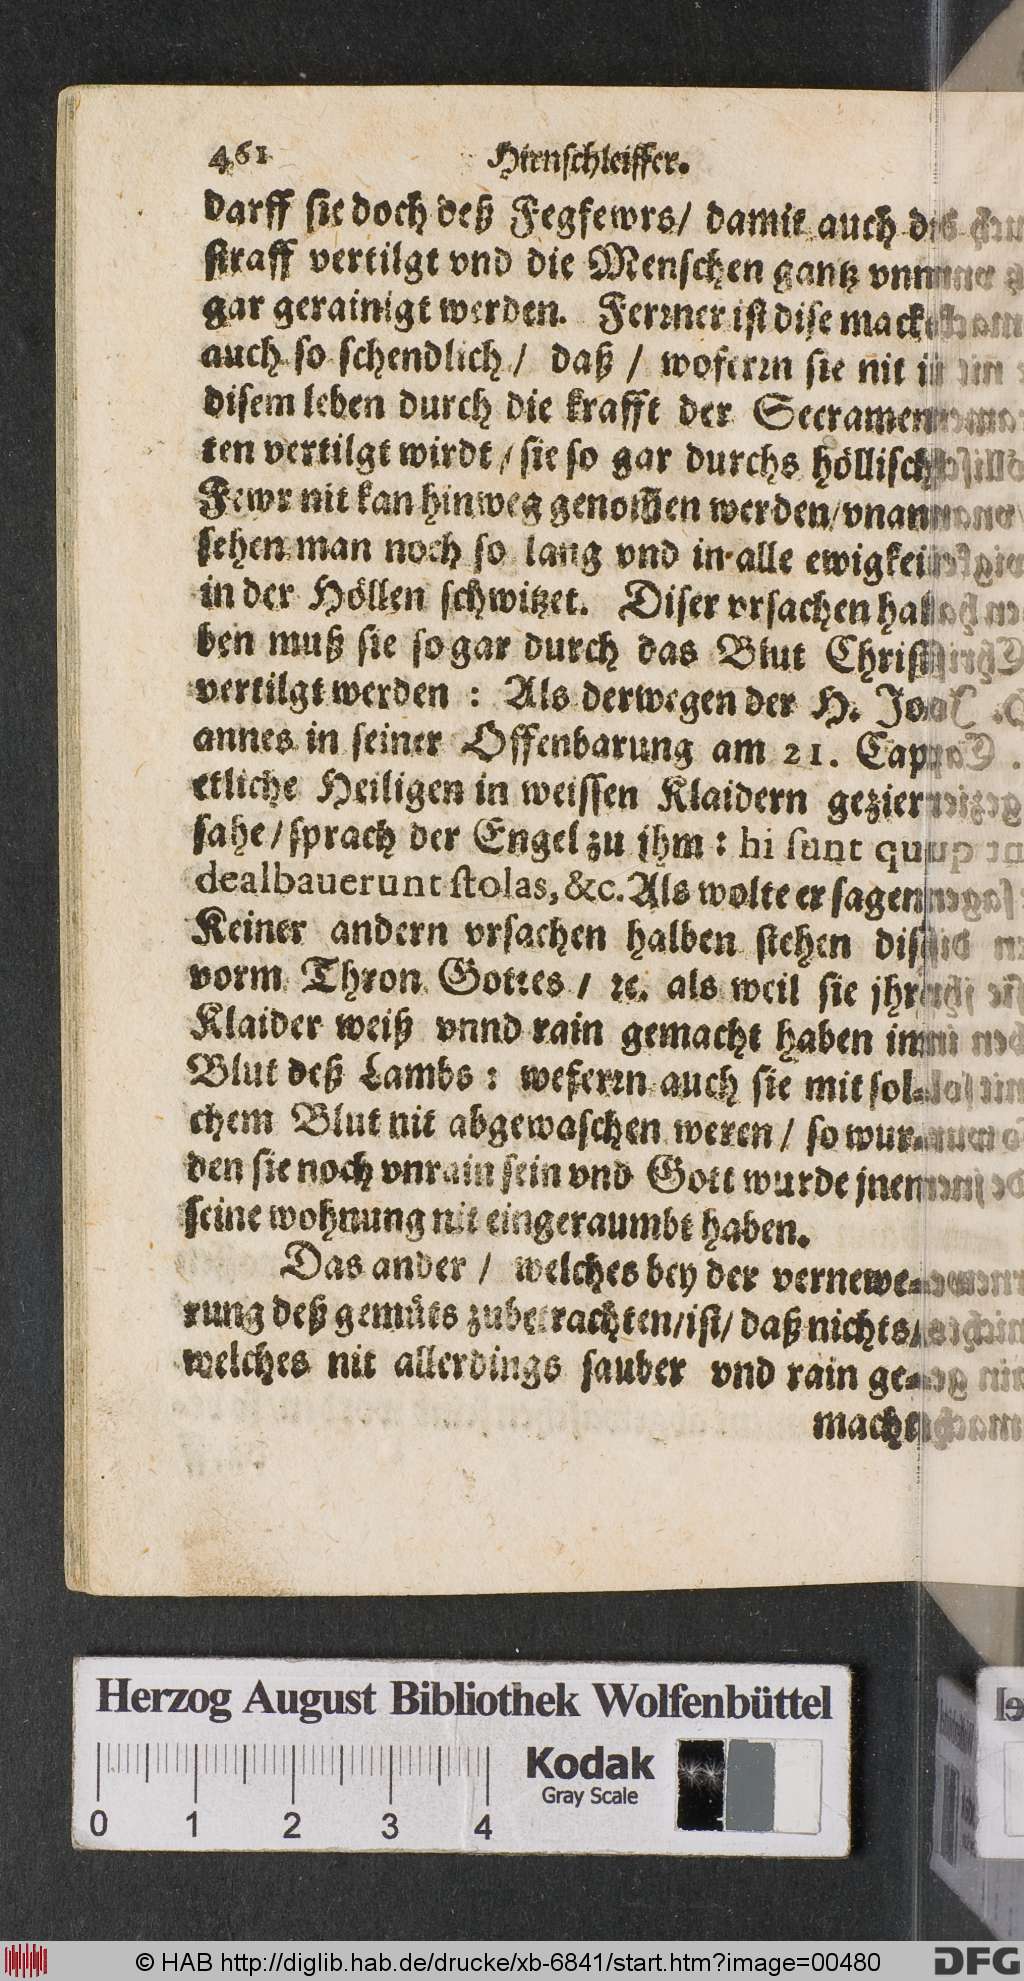 461 Hirnschleiffer.
darff sie doch deß Fegfewrs/ damit auch die
straff vertilgt vnd die Menschen gantz vnnd
gar gerainigt werden. Ferrner ist dise mackel
auch so schendlich / daß / woferrn sie nit in
disem leben durch die krafft der Secramen-
ten vertilgt wirdt / sie so gar durchs höllisch
Fewr nit kan hinweg genom̃en werden/vnan-
sehen man noch so lang vnd in alle ewigkeit
in der Höllen schwitzet. Diser vrsachen hal-
ben muß sie so gar durch das Blut Christi
vertilgt werden : Als derwegen der H. Jo-
annes in seiner Offenbarung am 21. Cap.
etliche Heiligen in weissen Klaidern geziert
sahe / sprach der Engel zu jhm : hi sunt qui
dealbauerunt stolas, &c. Als wolte er sagen
Keiner andern vrsachen halben stehen dise
vorm Thron Gottes / ꝛc. als weil sie jhre
Klaider weiß vnnd rain gemacht haben im
Blut deß Lambs : weferrn auch sie mit sol-
chem Blut nit abgewaschen weren / so wur-
den sie noch vnrain sein vnd Gott wurde jnen
seine wohnung nit eingeraumbt haben.
Das ander / welches bey der vernewe-
rung deß gemüts zubetrachten/ist/ daß nichts/
welches nit allerdings sauber vnd rain ge-
macht
Herzog August Bibliothek Wolfenbüttel
Kodak
Gray Scale
0 1 2 3 4
© HAB http://diglib.hab.de/drucke/xb-6841/start.htm?image=00480
DFG